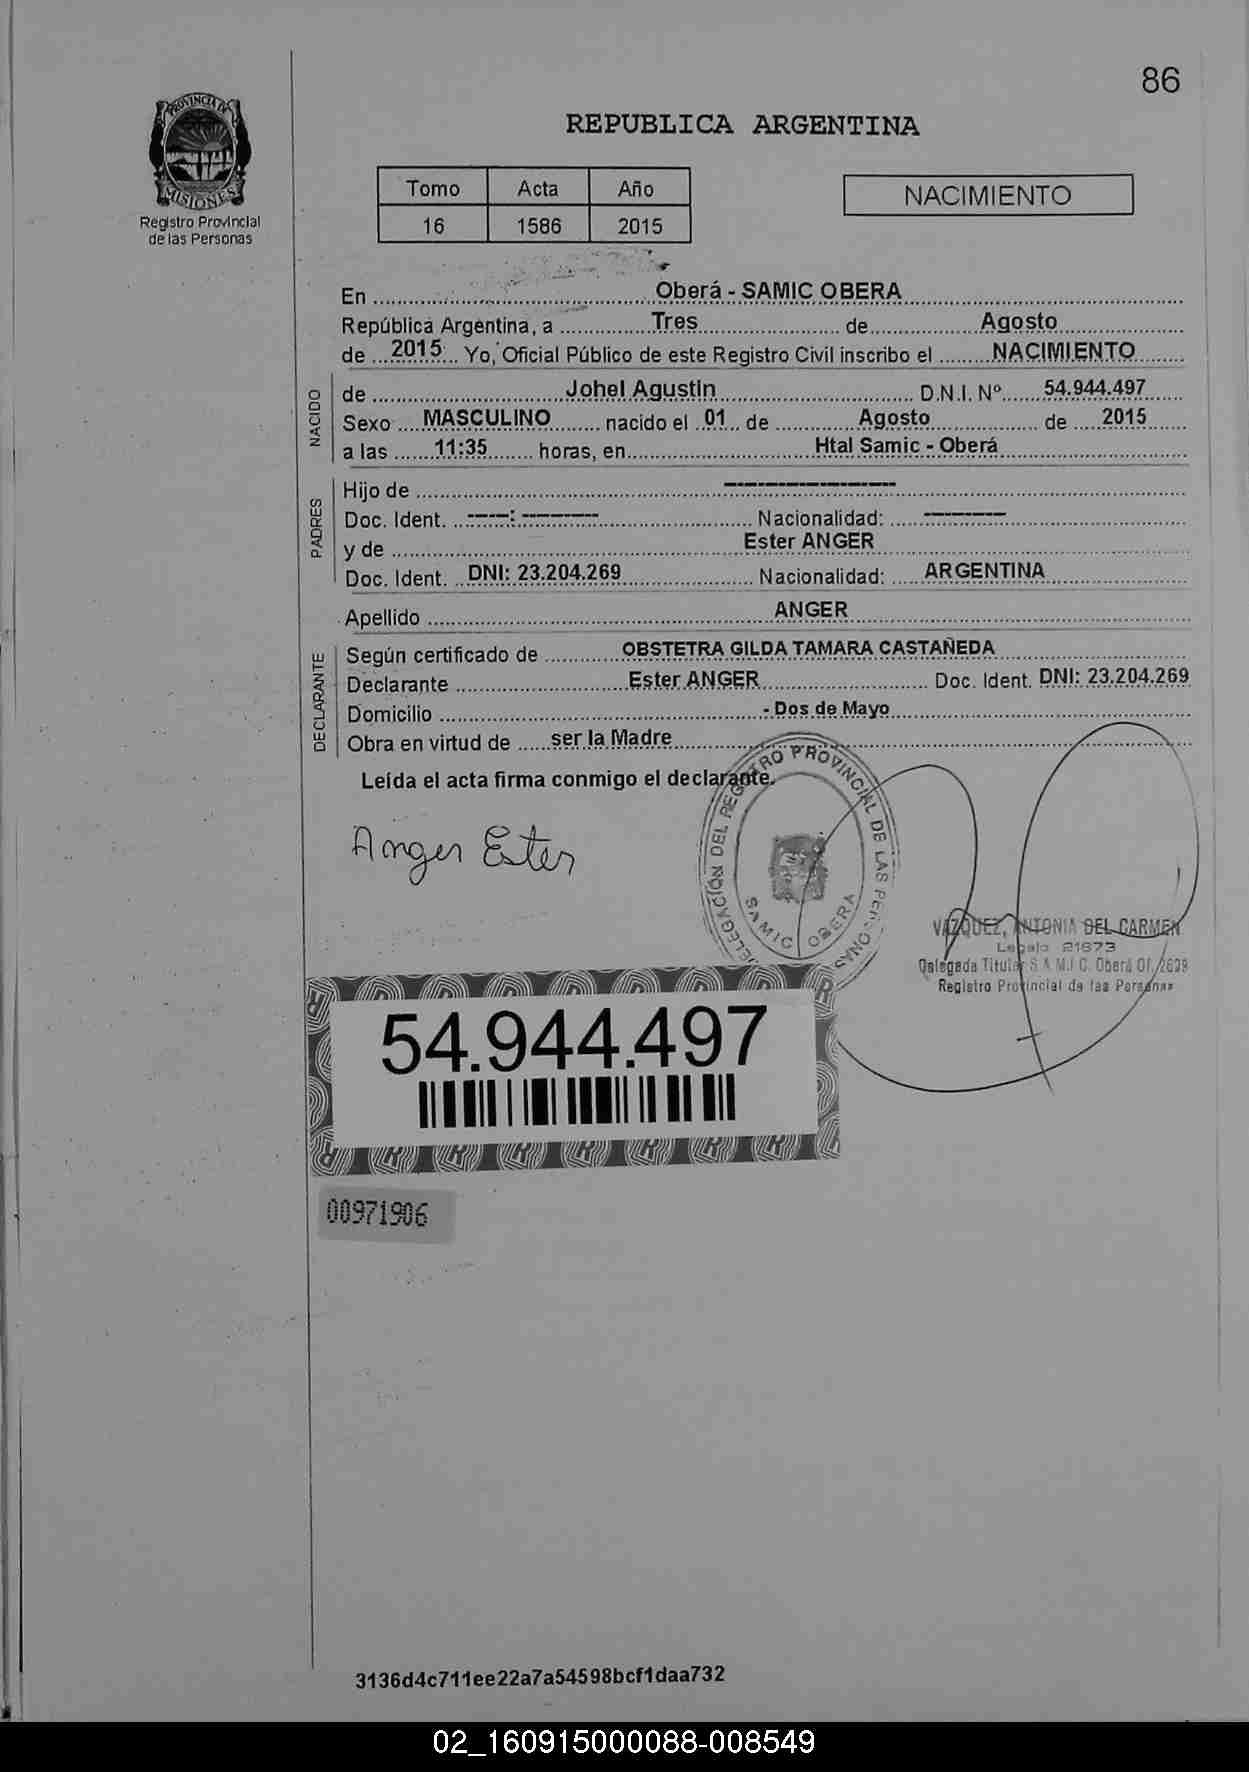 86
PROVINCIA DE
MISIONES
Registro Provincial
de las Personas
REPUBLICA ARGENTINA
Tomo Acta Año
16 1586 2015
NACIMIENTO
En Oberá - SAMIC OBERA
República Argentina, a Tres de Agosto
de 2015 Yo, Oficial Público de este Registro Civil inscribo el NACIMIENTO
NACIDO
de Johel Agustin D.N.I. Nº 54.944.497
Sexo MASCULINO nacido el 01 de Agosto de 2015
a las 11:35 horas, en Htal Samic - Oberá
PADRES
Hijo de --------------------
Doc. Ident. -----: --------- Nacionalidad: ----------
y de Ester ANGER
Doc. Ident. DNI: 23.204.269 Nacionalidad: ARGENTINA
Apellido ANGER
DECLARANTE
Según certificado de OBSTETRA GILDA TAMARA CASTAÑEDA
Declarante Ester ANGER Doc. Ident. DNI: 23.204.269
Domicilio - Dos de Mayo
Obra en virtud de ser la Madre
Leída el acta firma conmigo el declarante.
Anger Ester
DELEGACIÓN DEL REGISTRO PROVINCIAL DE LAS PERSONAS
SAMIC OBERA
VAZQUEZ, ANTONIA DEL CARMEN
Legajo 21873
Delegada Titular S.A.M.I.C. Oberá Of. 2639
Registro Provincial de las Personas
54.944.497
00971906
3136d4c711ee22a7a54598bcf1daa732
02_160915000088-008549